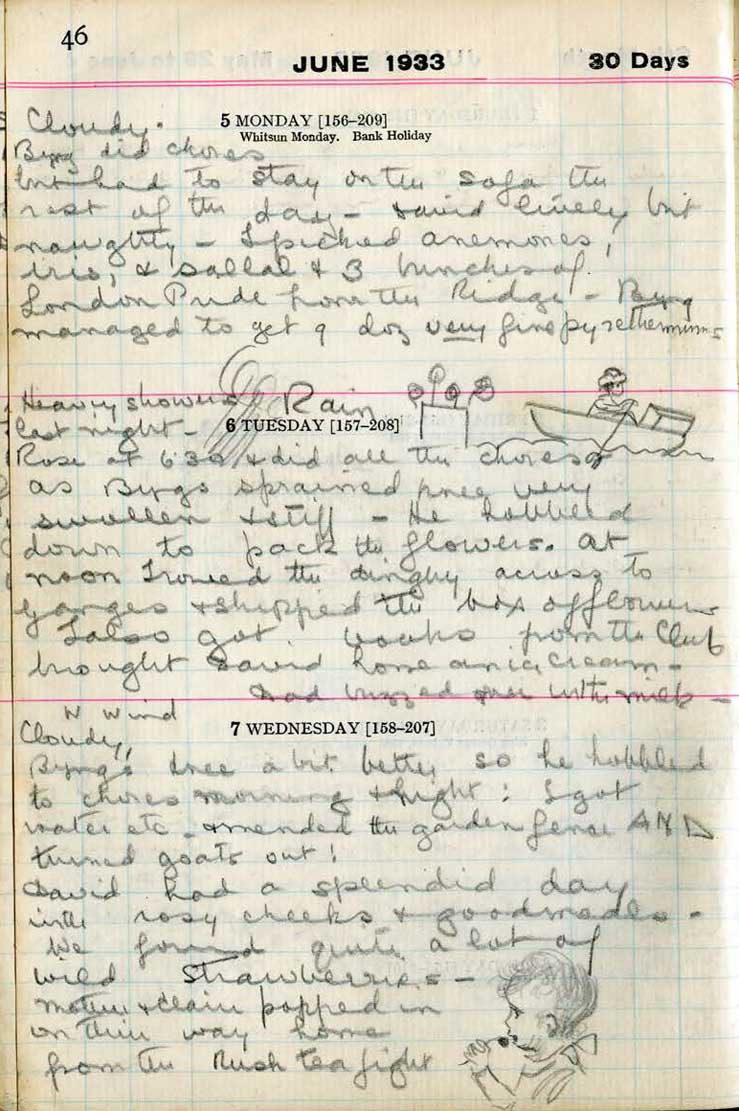 46
JUNE 1933 30 Days
Cloudy.
5 MONDAY [156-209]
Whitsun Monday. Bank Holiday
Byng did chores
but had to stay on the sofa the
rest of the day - David lively but
naughty - I picked anemones,
iris, & sallal & 3 bunches of
London Pride from the Ridge - Byng
managed to get 9 doz very fine pyrethermums
Heavy showers Rain
last night -
6 TUESDAY [157-208]
Rose at 6.30 & did all the chores
as Byngs sprained knee very
swollen & stiff - He hobbled
down to pack the flowers. at
noon I rowed the dinghy across to
Ganges & shipped the box of flowers
I also got books from the Club
brought David home an ice cream -
Dad buzzed over with milk -
N Wind
Cloudy,
7 WEDNESDAY [158-207]
Byng's knee a bit better so he hobbled
to chores morning & night : I got
water etc - & mended the garden fence AND
turned goats out !
David had a splendid day
with rosy cheeks & good moods -
We found quite a lot of
wild strawberries -
Mother & Claire popped in
on their way home
from the Rush tea fight